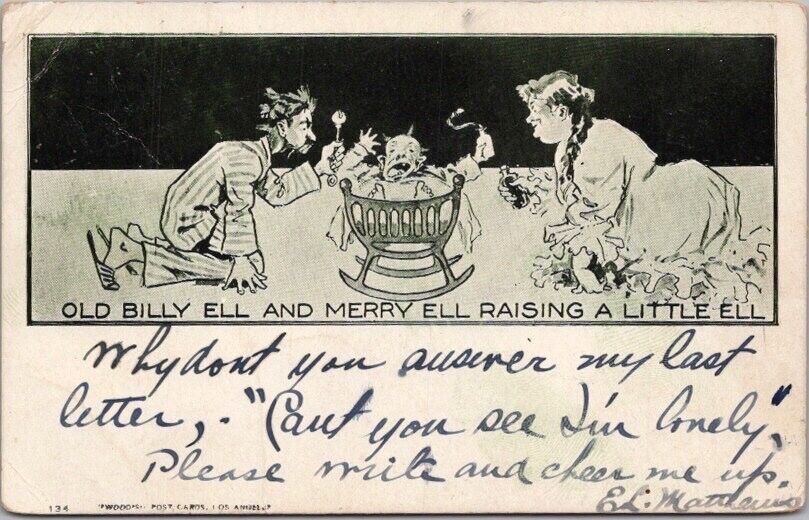 OLD BILLY ELL AND MERRY ELL RAISING A LITTLE ELL
Why dont you answer my last
letter, - "Cant you see I'm lonely",
Please write and cheer me up.
E.L. Matthews
134 "WOOD'S" POST CARDS, LOS ANGELES